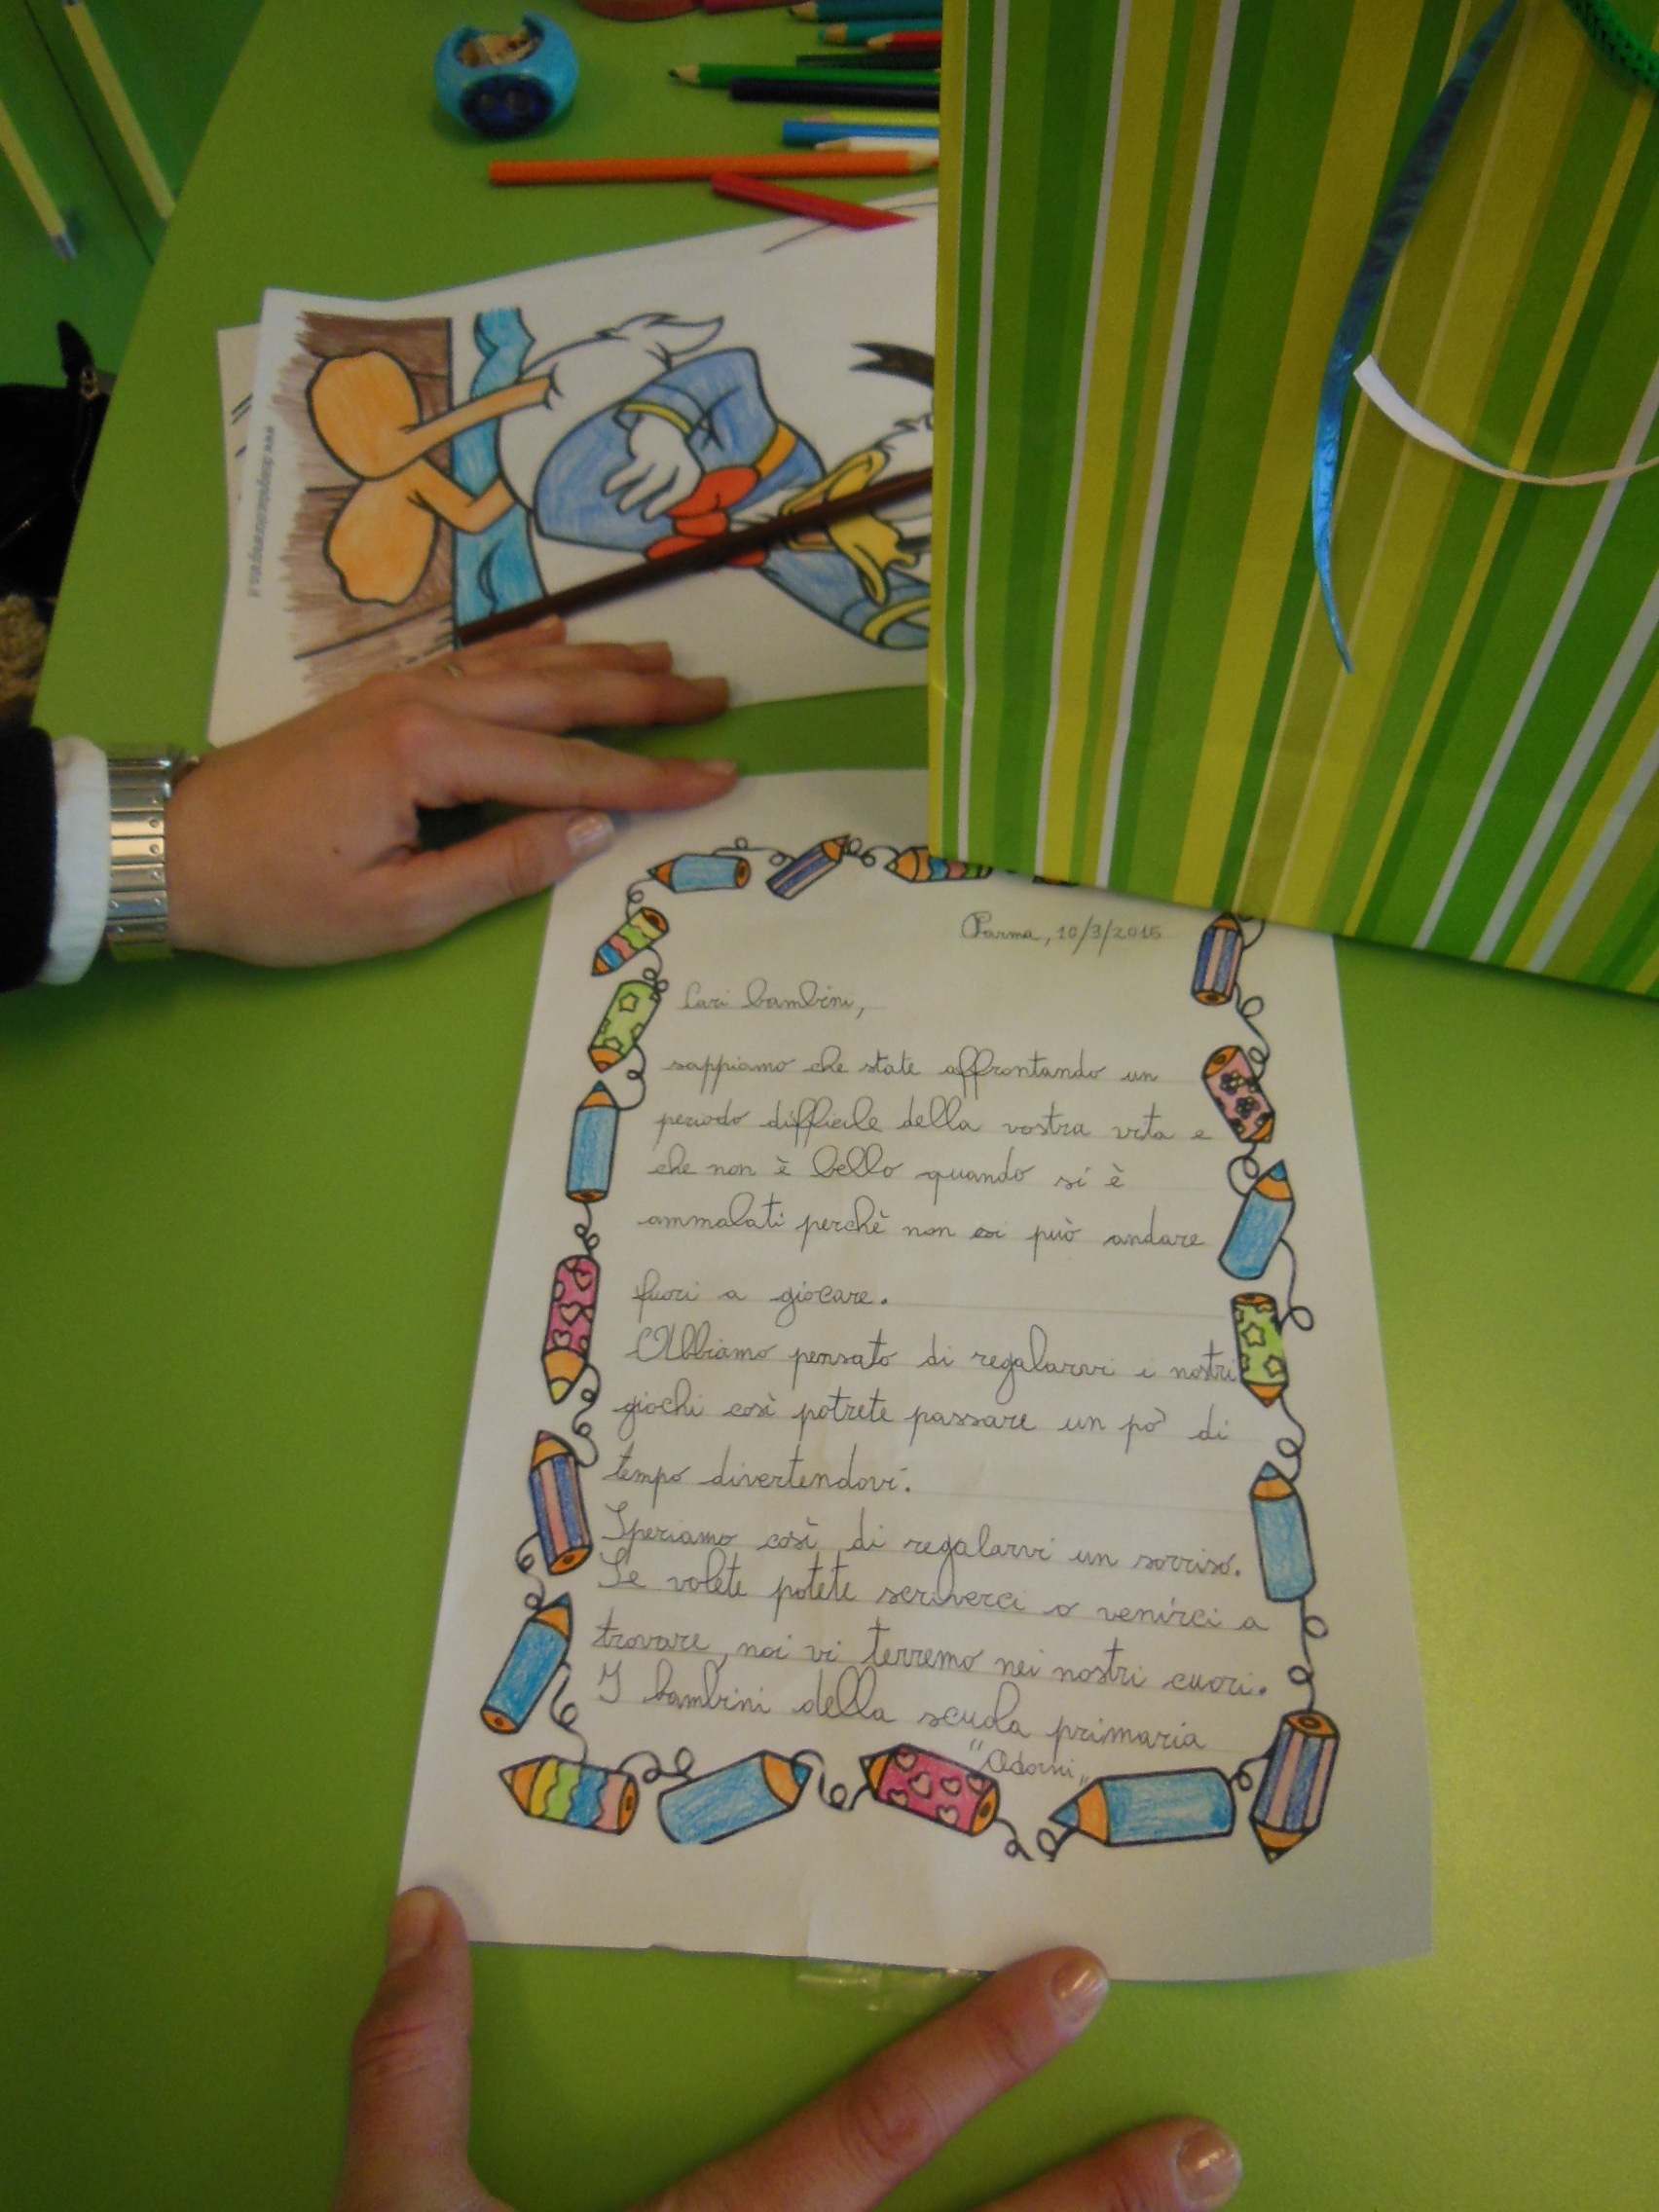 Parma, 10/3/2015
Cari bambini,
sappiamo che state affrontando un
periodo difficile della vostra vita e
che non è bello quando si è
ammalati perchè non si può andare
fuori a giocare.
Abbiamo pensato di regalarvi i nostri
giochi così potrete passare un po' di
tempo divertendovi.
Speriamo così di regalarvi un sorriso.
Se volete potete scriverci o venirci a
trovare, noi vi terremo nei nostri cuori.
I bambini della scuola primaria
"Adorni"